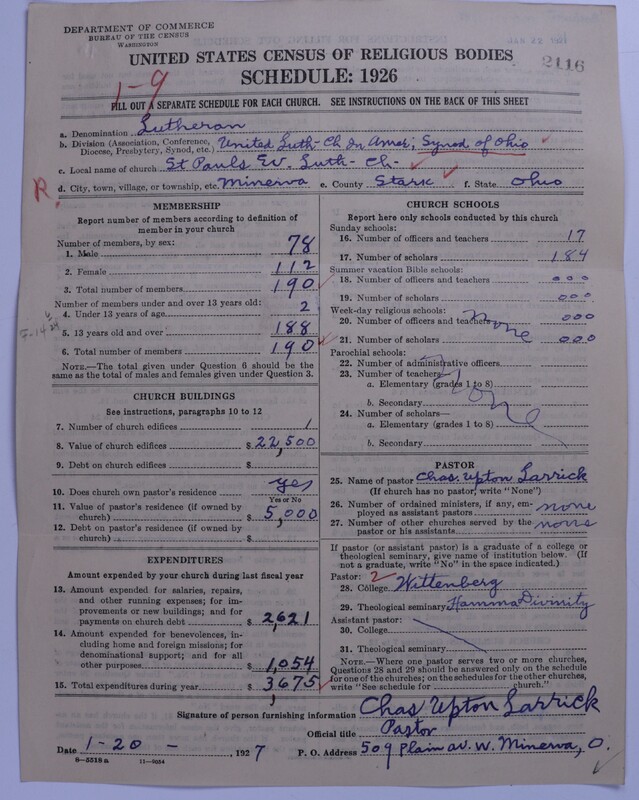 DEPARTMENT OF COMMERCE
BUREAU OF THE CENSUS
WASHINGTON
UNITED STATES CENSUS OF RELIGIOUS BODIES
2116
SCHEDULE: 1926
1-9
FILL OUT A SEPARATE SCHEDULE FOR EACH CHURCH. SEE INSTRUCTIONS ON THE BACK OF THIS SHEET
a. Denomination Lutheran
b. Division (Association, Conference, Diocese, Presbytery, Synod, etc.) United Luth- Ch In Amer; Synod of Ohio
c. Local name of church St Pauls Ev. Luth- Ch-
R.
d. City, town, village, or township, etc. Minerva e. County Stark f. State Ohio
MEMBERSHIP
Report number of members according to definition of
member in your church
Number of members, by sex:
1. Male 78
2. Female 112
3. Total number of members 190
Number of members under and over 13 years old:
4. Under 13 years of age 2
5. 13 years old and over 188
6. Total number of members 190
NOTE.—The total given under Question 6 should be
the same as the total of males and females given under Question 3.
CHURCH BUILDINGS
See instructions, paragraphs 10 to 12
7. Number of church edifices 1
8. Value of church edifices $ 22,500
9. Debt on church edifices $
10. Does church own pastor's residence yes
Yes or No
11. Value of pastor's residence (if owned by
church) $ 5,000
12. Debt on pastor's residence (if owned by
church) $
EXPENDITURES
Amount expended by your church during last fiscal year
13. Amount expended for salaries, repairs,
and other running expenses; for im-
provements or new buildings; and for
payments on church debt $ 2,621
14. Amount expended for benevolences, in-
cluding home and foreign missions; for
denominational support; and for all
other purposes $ 1,054
15. Total expenditures during year $ 3,675
CHURCH SCHOOLS
Report here only schools conducted by this church
Sunday schools:
16. Number of officers and teachers 17
17. Number of scholars 184
Summer vacation Bible schools:
18. Number of officers and teachers 000
19. Number of scholars 000
Week-day religious schools:
20. Number of officers and teachers none 000
21. Number of scholars 000
Parochial schools:
22. Number of administrative officers
23. Number of teachers—
a. Elementary (grades 1 to 8)
b. Secondary
None
24. Number of scholars—
a. Elementary (grades 1 to 8)
b. Secondary
PASTOR
25. Name of pastor Chas. Upton Larrick
(If church has no pastor, write "None")
26. Number of ordained ministers, if any, em-
ployed as assistant pastors none
27. Number of other churches served by the
pastor or his assistants none
If pastor (or assistant pastor) is a graduate of a college or
theological seminary, give name of institution below. (If
not a graduate, write "No" in the space indicated.)
Pastor: 2
28. College Wittenberg
29. Theological seminary Hamma Divinity
Assistant pastor:
30. College
31. Theological seminary
NOTE.—Where one pastor serves two or more churches,
Questions 28 and 29 should be answered only on the schedule
for one of the churches; on the schedules for the other churches,
write "See schedule for church."
Signature of person furnishing information Chas Upton Larrick
Official title Pastor
Date 1-20- 1927 P. O. Address 509 Plain av. W. Minerva, O.
8—5519 a 11—9054